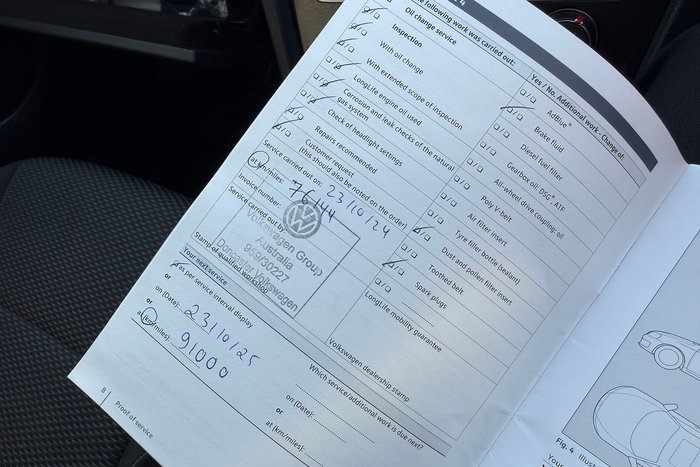 e following work was carried out:
Oil change service
Inspection
With oil change
With extended scope of inspection
LongLife engine oil used
Corrosion and leak checks of the natural
gas system
Check of headlight settings
Repairs recommended
Customer request
(this should also be noted on the order)
Service carried out on: 23/10/24
at (km/miles): 76144
Invoice number:
Service carried out by
Volkswagen Group
Australia
989/30227
Doncaster Volkswagen
Stamp of qualified workshop
Your next service
as per service interval display
or
on (Date): 23/10/25
or
at (km/miles): 91000
Yes / No. Additional work: Change of:
AdBlue®
Brake fluid
Diesel fuel filter
Gearbox oil: DSG® ATF
All-wheel drive coupling oil
Poly V-belt
Air filter insert
Tyre filler bottle (sealant)
Dust and pollen filter insert
Toothed belt
Spark plugs
LongLife mobility guarantee
Volkswagen dealership stamp
Which service/additional work is due next?
on (Date):
or
at (km/miles):
8 Proof of service
Fig. 4 Illus
Your